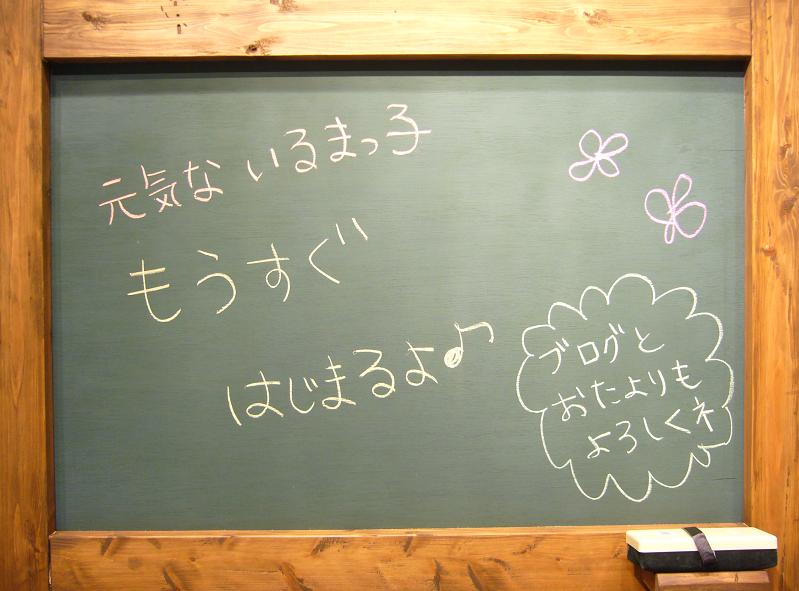 元気な いるまっ子
もうすぐ
はじまるよ♪
ブログと
おたよりも
よろしくネ